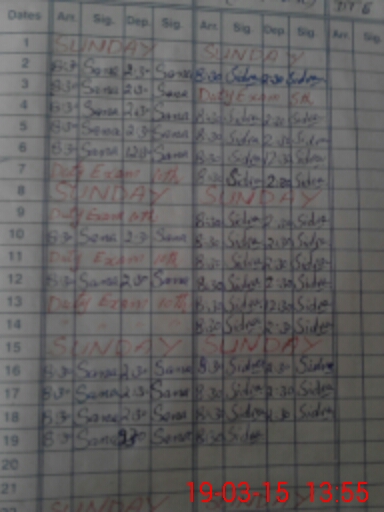 Dates Arr. Sig. Dep. Sig. Arr. Sig. Dep. Sig. Arr. Sig.
1 SUNDAY SUNDAY
2 8:30 Sana 2:30 Sana 8:30 Sidra 2:30 Sidra
3 8:30 Sana 2:30 Sana Duty Exam 5th
4 8:30 Sana 2:30 Sana 8:30 Sidra 2:30 Sidra
5 8:30 Sana 2:30 Sana 8:30 Sidra 2:30 Sidra
6 8:30 Sana 12:30 Sana 8:30 Sidra 12:30 Sidra
7 Duty Exam 10th 8:30 Sidra 2:30 Sidra
8 SUNDAY SUNDAY
9 Duty Exam 10th 8:30 Sidra 2:30 Sidra
10 8:30 Sana 2:30 Sana 8:30 Sidra 2:30 Sidra
11 Duty Exam 10th 8:30 Sidra 2:30 Sidra
12 8:30 Sana 2:30 Sana 8:30 Sidra 2:30 Sidra
13 Duty Exam 10th 8:30 Sidra 12:30 Sidra
14 8:30 Sidra 2:30 Sidra
15 SUNDAY SUNDAY
16 8:30 Sana 2:30 Sana 8:30 Sidra 2:30 Sidra
17 8:30 Sana 2:30 Sana 8:30 Sidra 2:30 Sidra
18 8:30 Sana 2:30 Sana 8:30 Sidra 2:30 Sidra
19 8:30 Sana 2:30 Sana 8:30 Sidra
20
21
SUNDAY SUNDAY
19-03-15 13:55